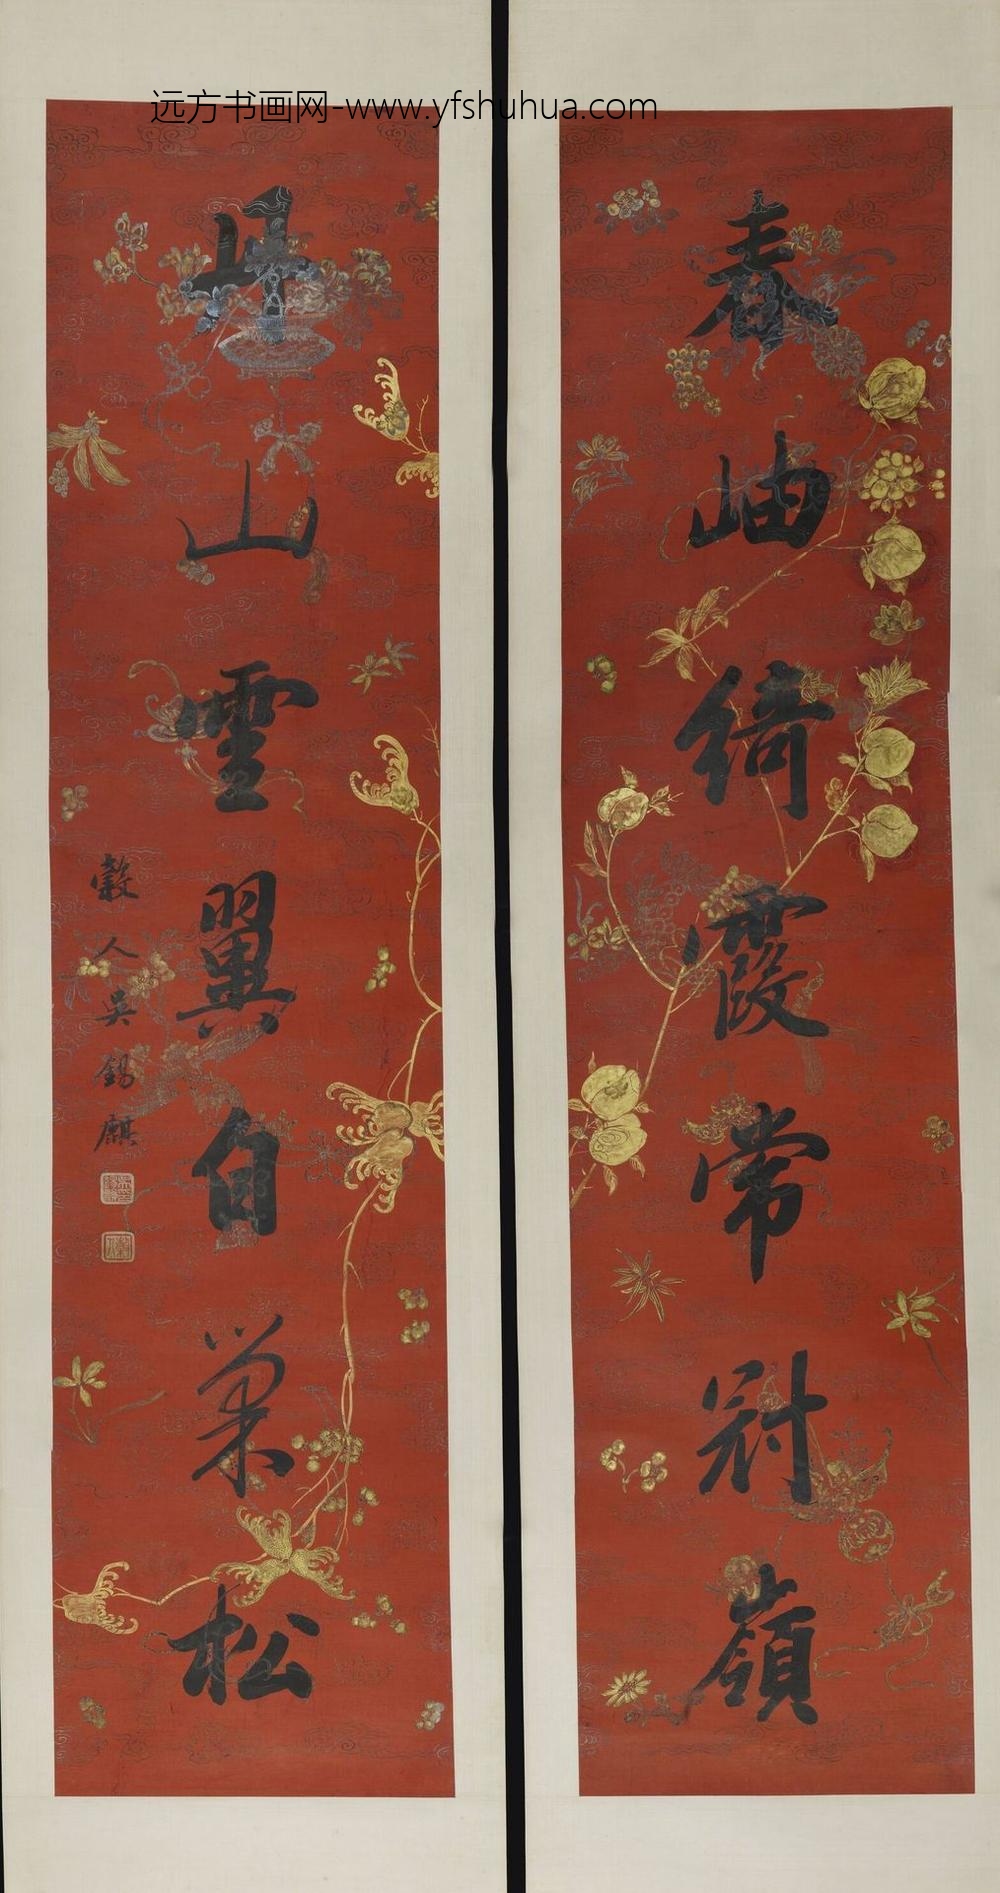 远方书画网-www.yfshuhua.com
春岫綺霞常冠嶺
丹山靈翼自巢松
穀人吳錫麒